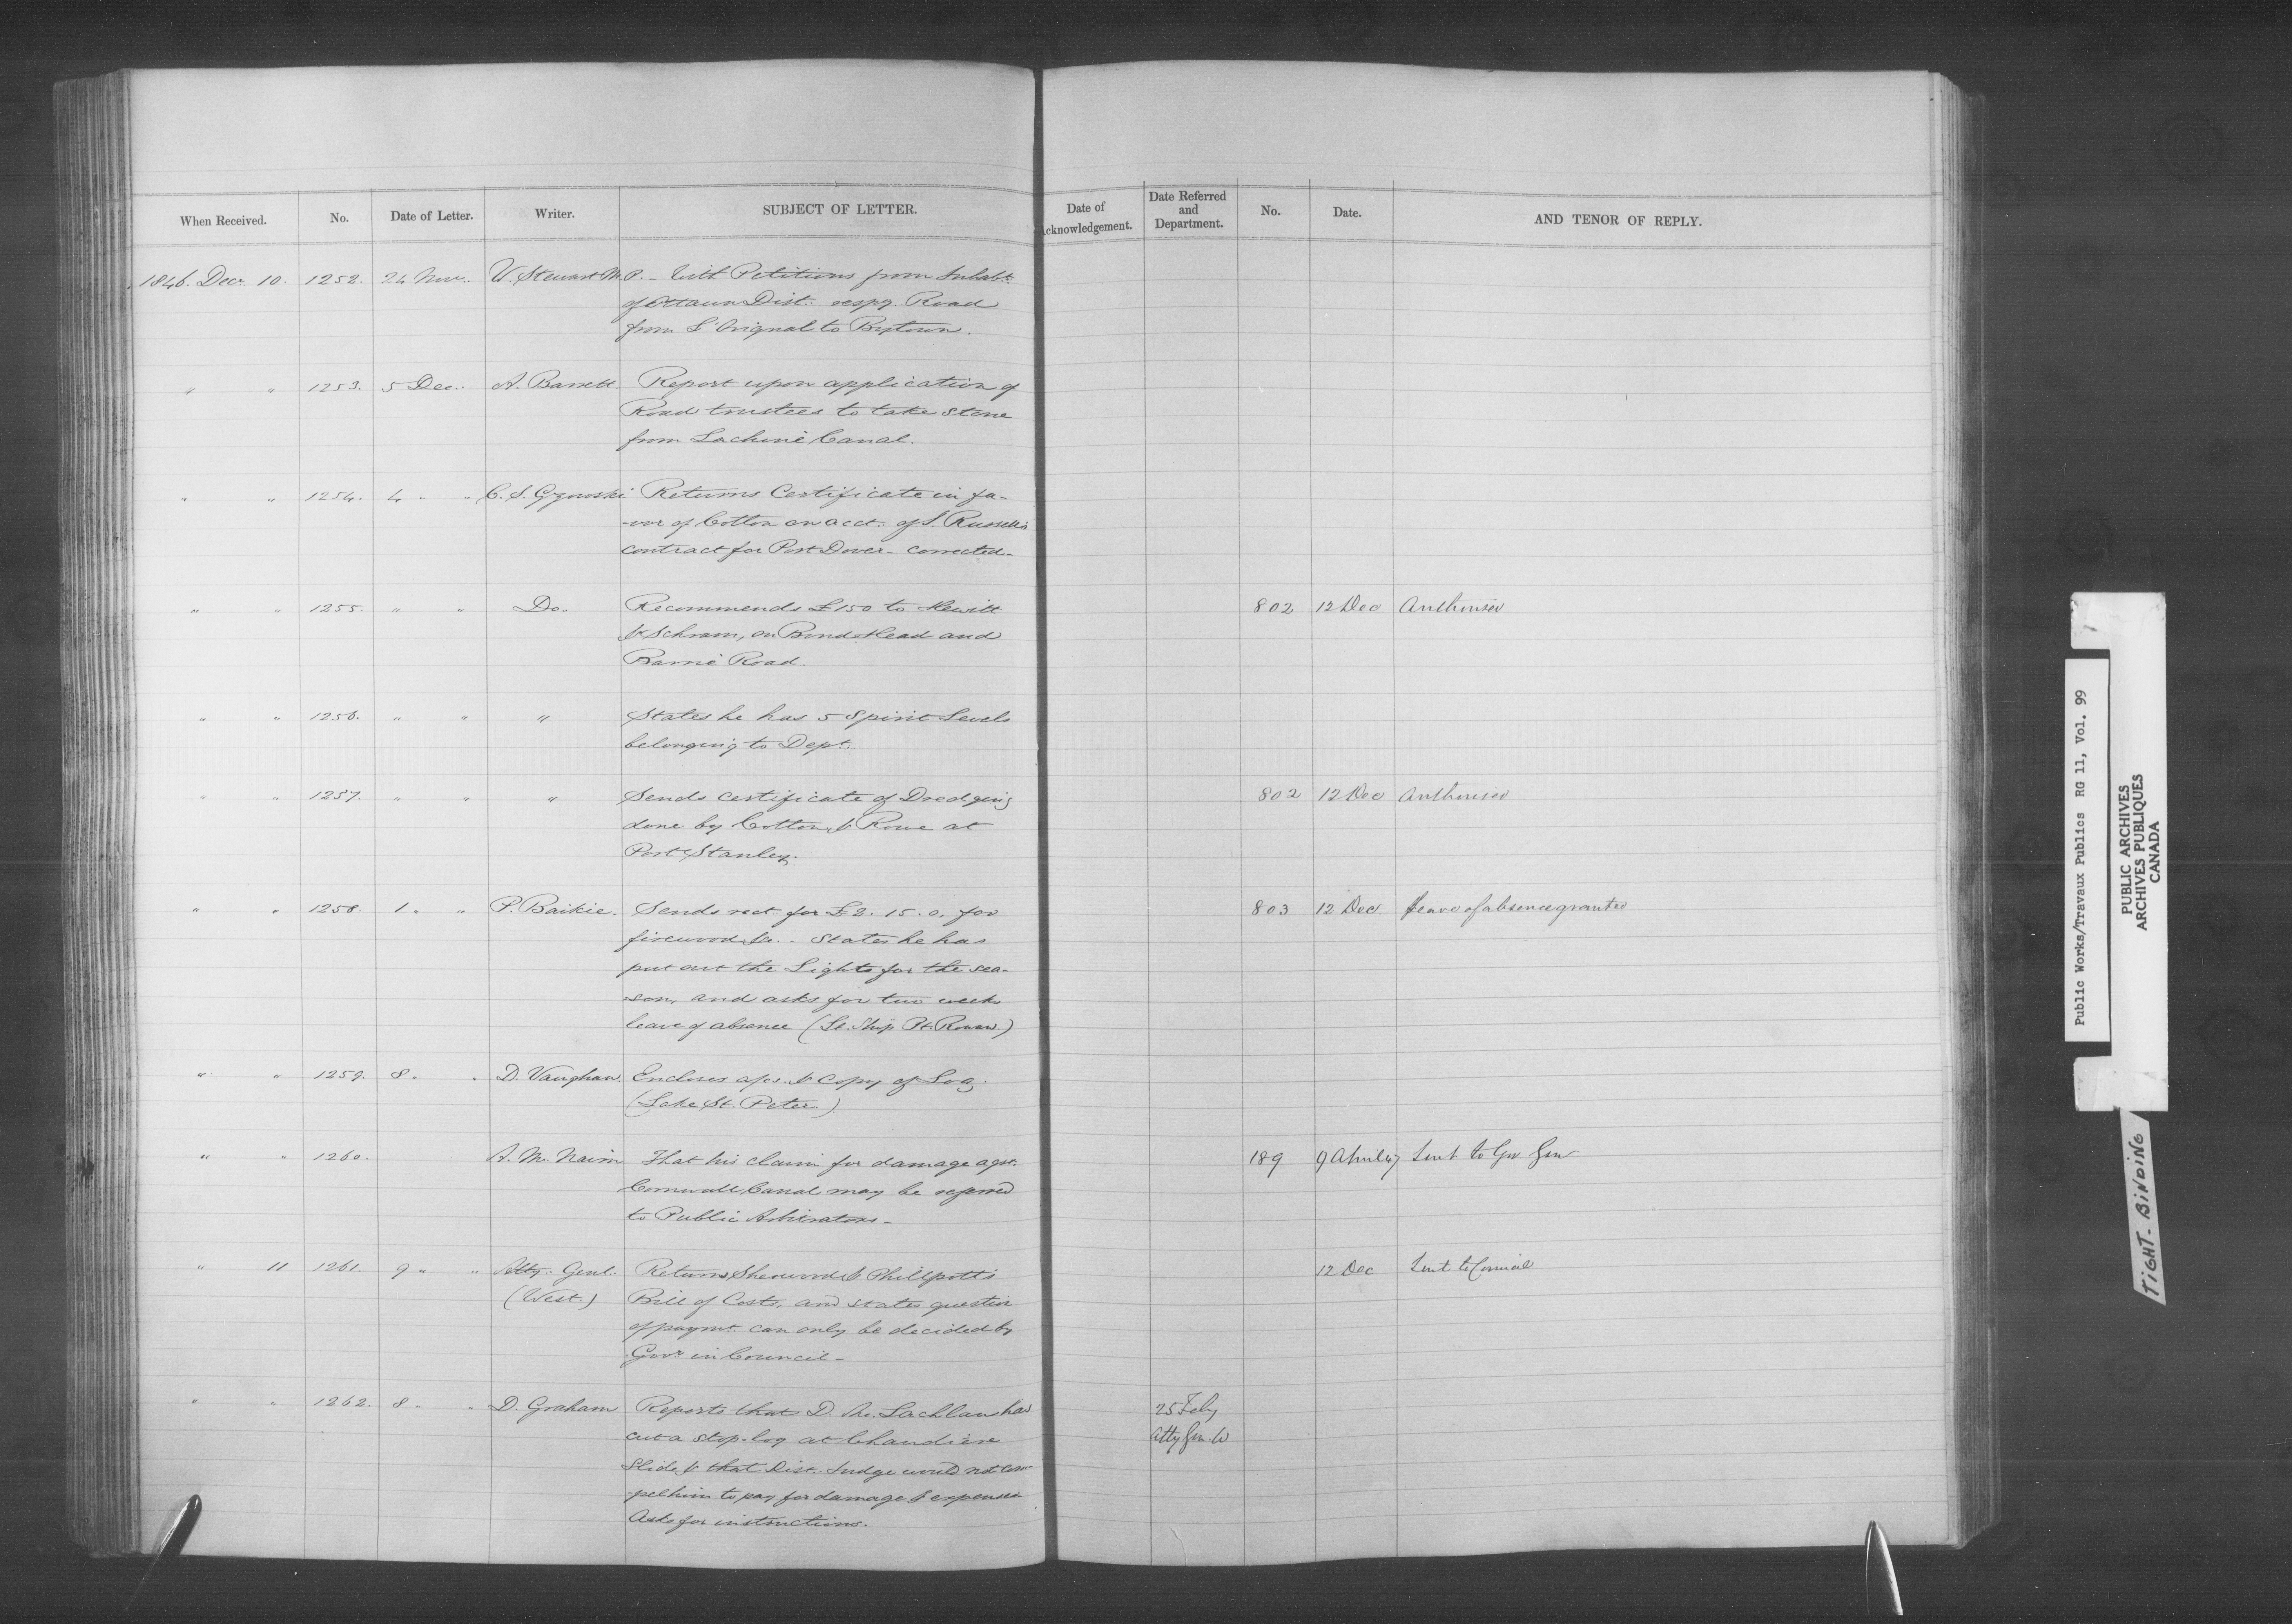 When Received. No. Date of Letter. Writer. SUBJECT OF LETTER. Date of Acknowledgement. Date Referred and Department. No. Date. AND TENOR OF REPLY.
1846. Decr. 10. 1252. 24 Nov. N. Stewart M.P. - With Petitions from Inhabts.
of Ottawa Dist. respg. Road
from L'Orignal to Bytown.
" " 1253. 5 Dec. A. Barrett. Report upon application of
Road trustees to take stone
from Lachine Canal.
" " 1254. 4 " " C. S. Gzowski Returns Certificate in fa-
-vor of Cotton on acct. of J. Russell's
contract for Port Dover - corrected -
" " 1255. " " Do. Recommends £150 to Hewitt 802 12 Dec Authorised
& Schram, on Bond Head and
Barrie Road.
" " 1256. " " " States he has 5 Spirit Levels
belonging to Dept.
" " 1257. " " " Sends certificate of Dredging 802 12 Dec Authorised
done by Cotton & Rowe at
Port Stanley.
" " 1258. 1 " " P. Baikie. Sends rect. for £2. 15. 0, for 803 12 Dec. Leave of absence granted
firewood &c. - States he has
put out the Lights for the sea-
-son, and asks for two weeks
leave of absence (Lt. Ship Pt. Rowan.)
" " 1259. 8 " " D. Vaughan. Encloses a/cs. & copy of Log.
(Lake St. Peter)
" " 1260. A. M. Nairn That his claim for damage agst. 189 9 April 47 Sent to Gov Gen
Cornwall Canal may be referred
to Public Arbitrators -
" 11 1261. 9 " " Atty. Genl. Returns Sherwood & Phillpotts 12 Dec Sent to Council
(West.) Bill of Costs, and states question
of paymt. can only be decided by
Govr. in Council -
" " 1262. 8 " " D. Graham Reports that D. Mc. Lachlan has 25 Feby
cut a stop-log at Chaudière Atty Gen. W
Slide & that Dist. Judge would not com-
-pel him to pay for damage & expenses
Asks for instructions.
Public Works/Travaux Publics RG 11, Vol. 99
PUBLIC ARCHIVES
ARCHIVES PUBLIQUES
CANADA
TIGHT - BINDING